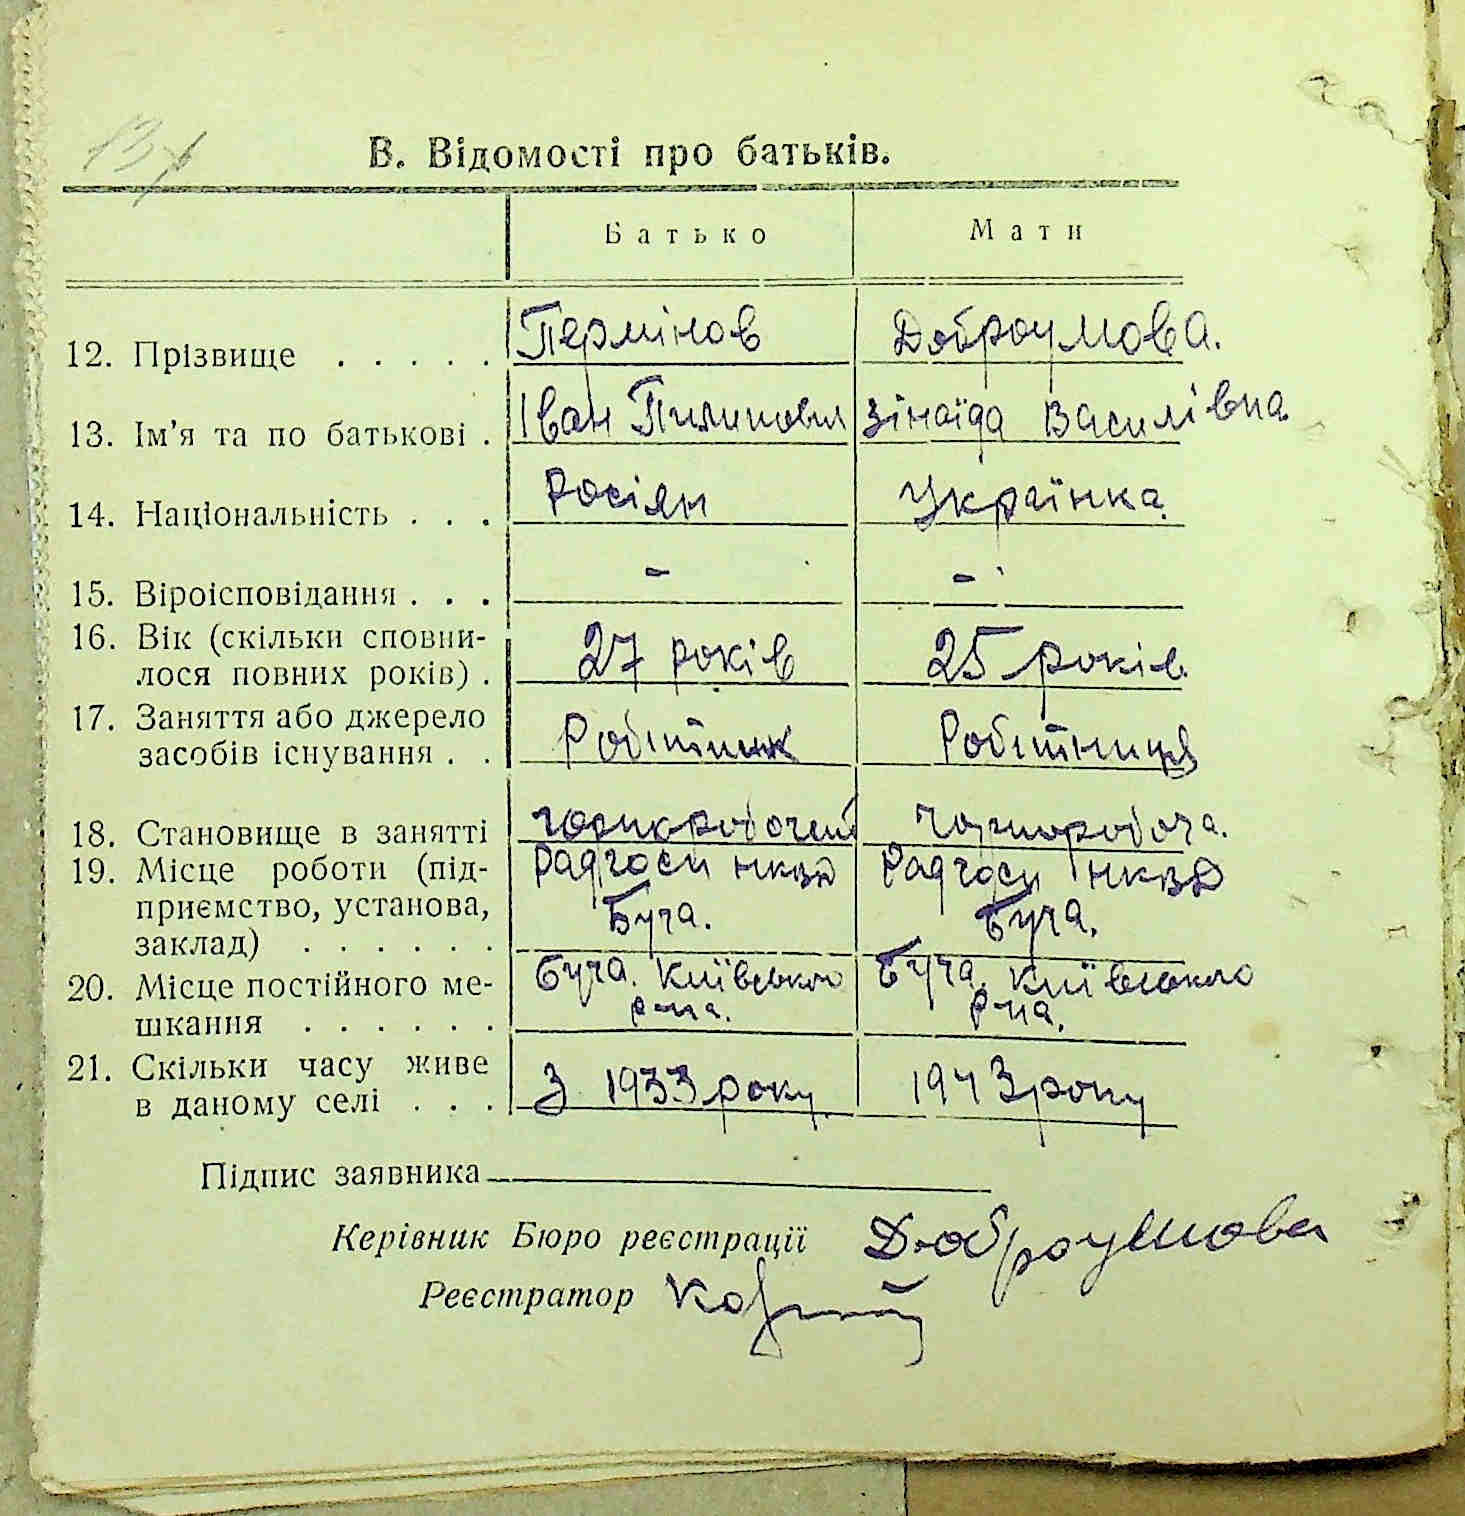 В. Відомості про батьків.
Батько Мати
12. Прізвище . . . . . Пермінов Доброумова.
13. Ім'я та по батькові . Іван Пилипович Зінаїда Василівна
14. Національність . . . Росіян Українка.
15. Віроісповідання . . . - -
16. Вік (скільки сповни-
лося повних років) . 27 років 25 років
17. Заняття або джерело
засобів існування . . Робітник Робітниця
18. Становище в занятті чорноробочий чорноробоча.
19. Місце роботи (під- Радгосп НКВД Радгосп НКВД
приємство, установа, Буча. Буча.
заклад) . . . . . .
20. Місце постійного ме- Буча. Київського Буча. Київського
шкання . . . . . . р-на. р-на.
21. Скільки часу живе
в даному селі . . . З 1933 року 1943 року
Підпис заявника
Керівник Бюро реєстрації Доброумова
Реєстратор